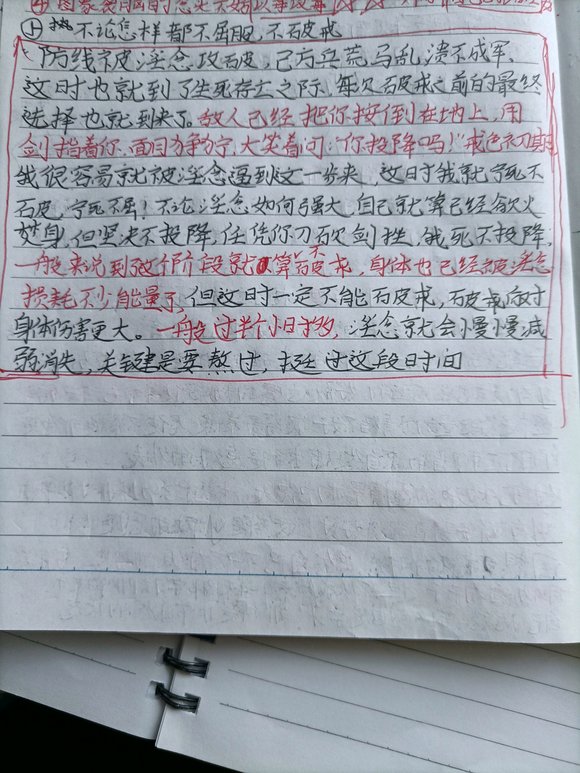 ① 不论怎样都不屈服,不破戒
防线被淫念攻破,己方兵荒马乱溃不成军,
这时也就到了生死存亡之际,每次破戒之前的最终
选择也就到来了。敌人已经把你按倒在地上,用
剑指着你,面目狰狞,大笑着问:“你投降吗!”戒色初期
我很容易就被淫念逼到这一步来,这时我就宁死不
破,宁死不屈!不论淫念如何强大,自己就算已经欲火
焚身,但坚决不投降,任凭你刀砍剑挫,我死不投降,
一般来说到这个阶段就算不破戒,身体也已经被淫念
损耗不少能量了,但这时一定不能破戒,破戒对
身体伤害更大。一般过半个小时多,淫念就会慢慢减
弱消失,关键是要熬过,挺过这段时间